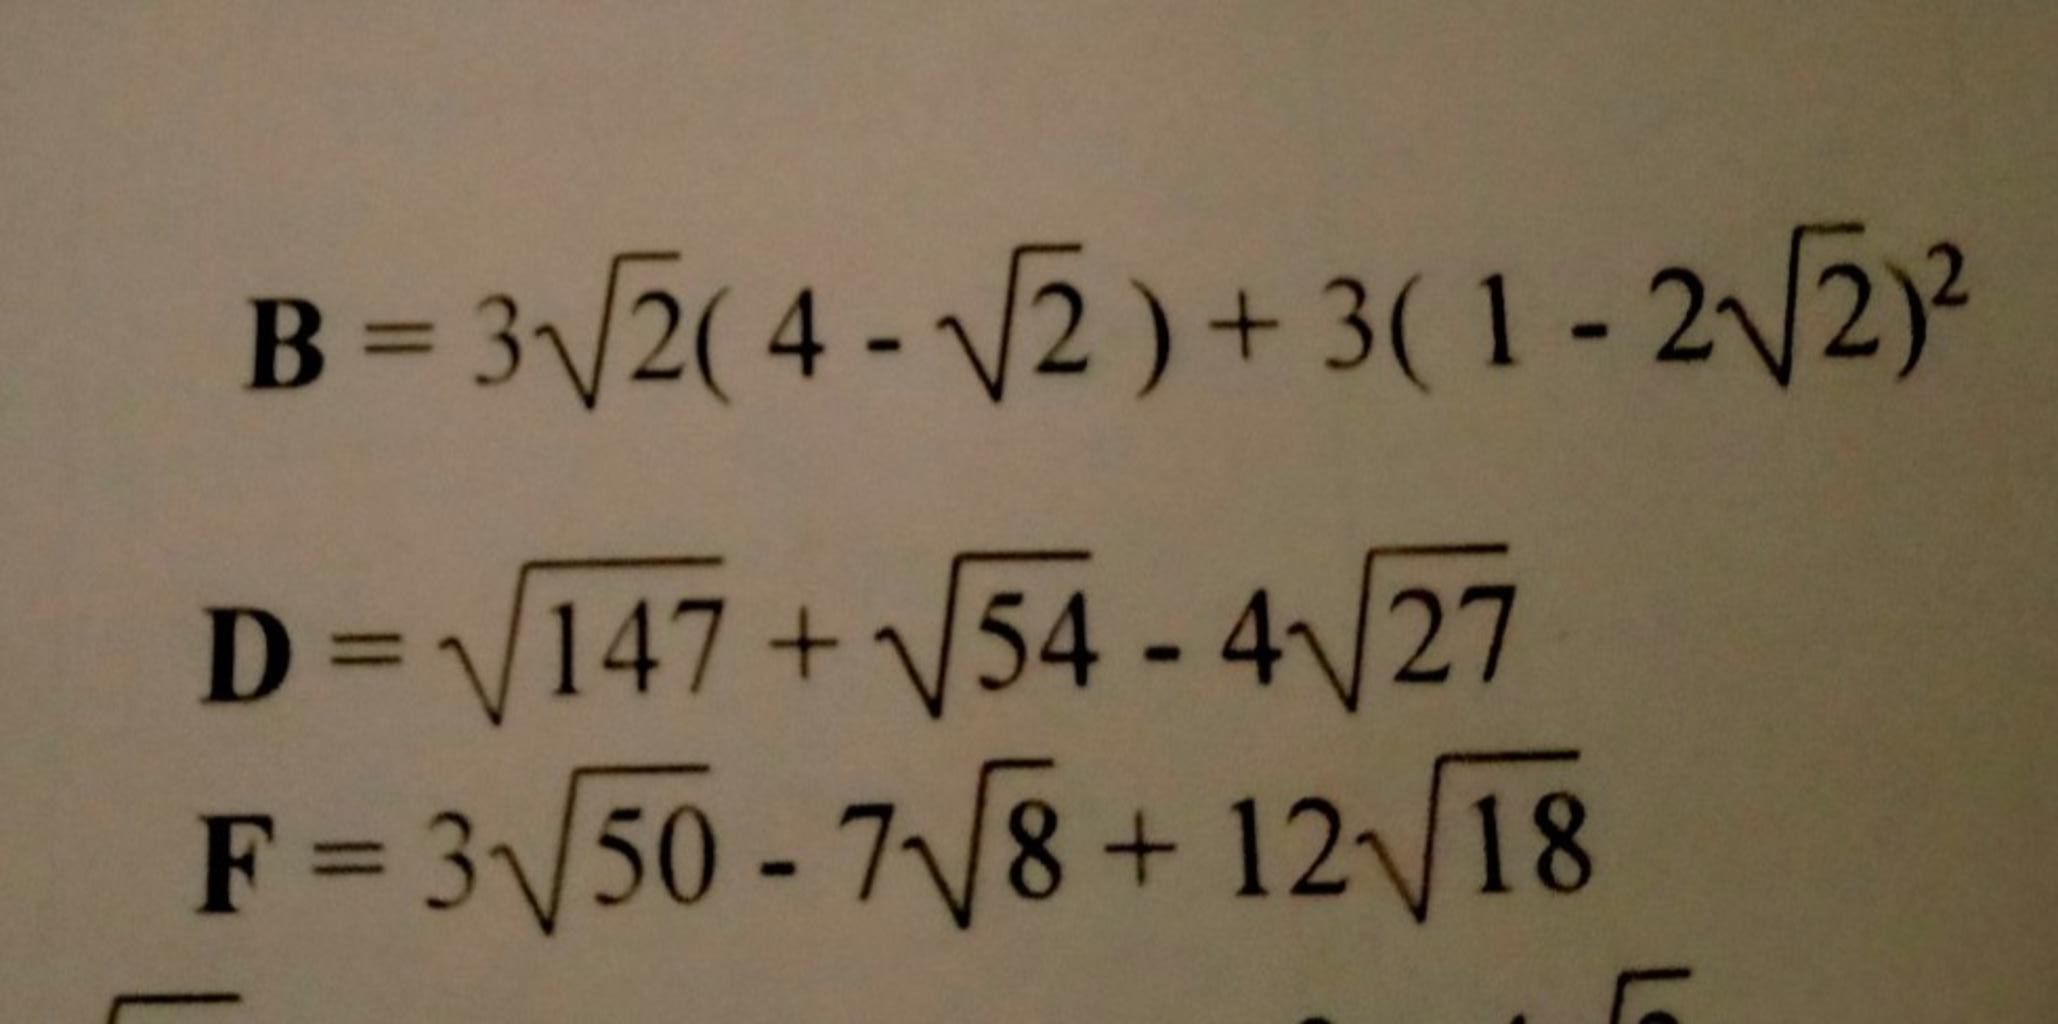 B = 3√2( 4 - √2 ) + 3( 1 - 2√2)²
D = √147 + √54 - 4√27
F = 3√50 - 7√8 + 12√18